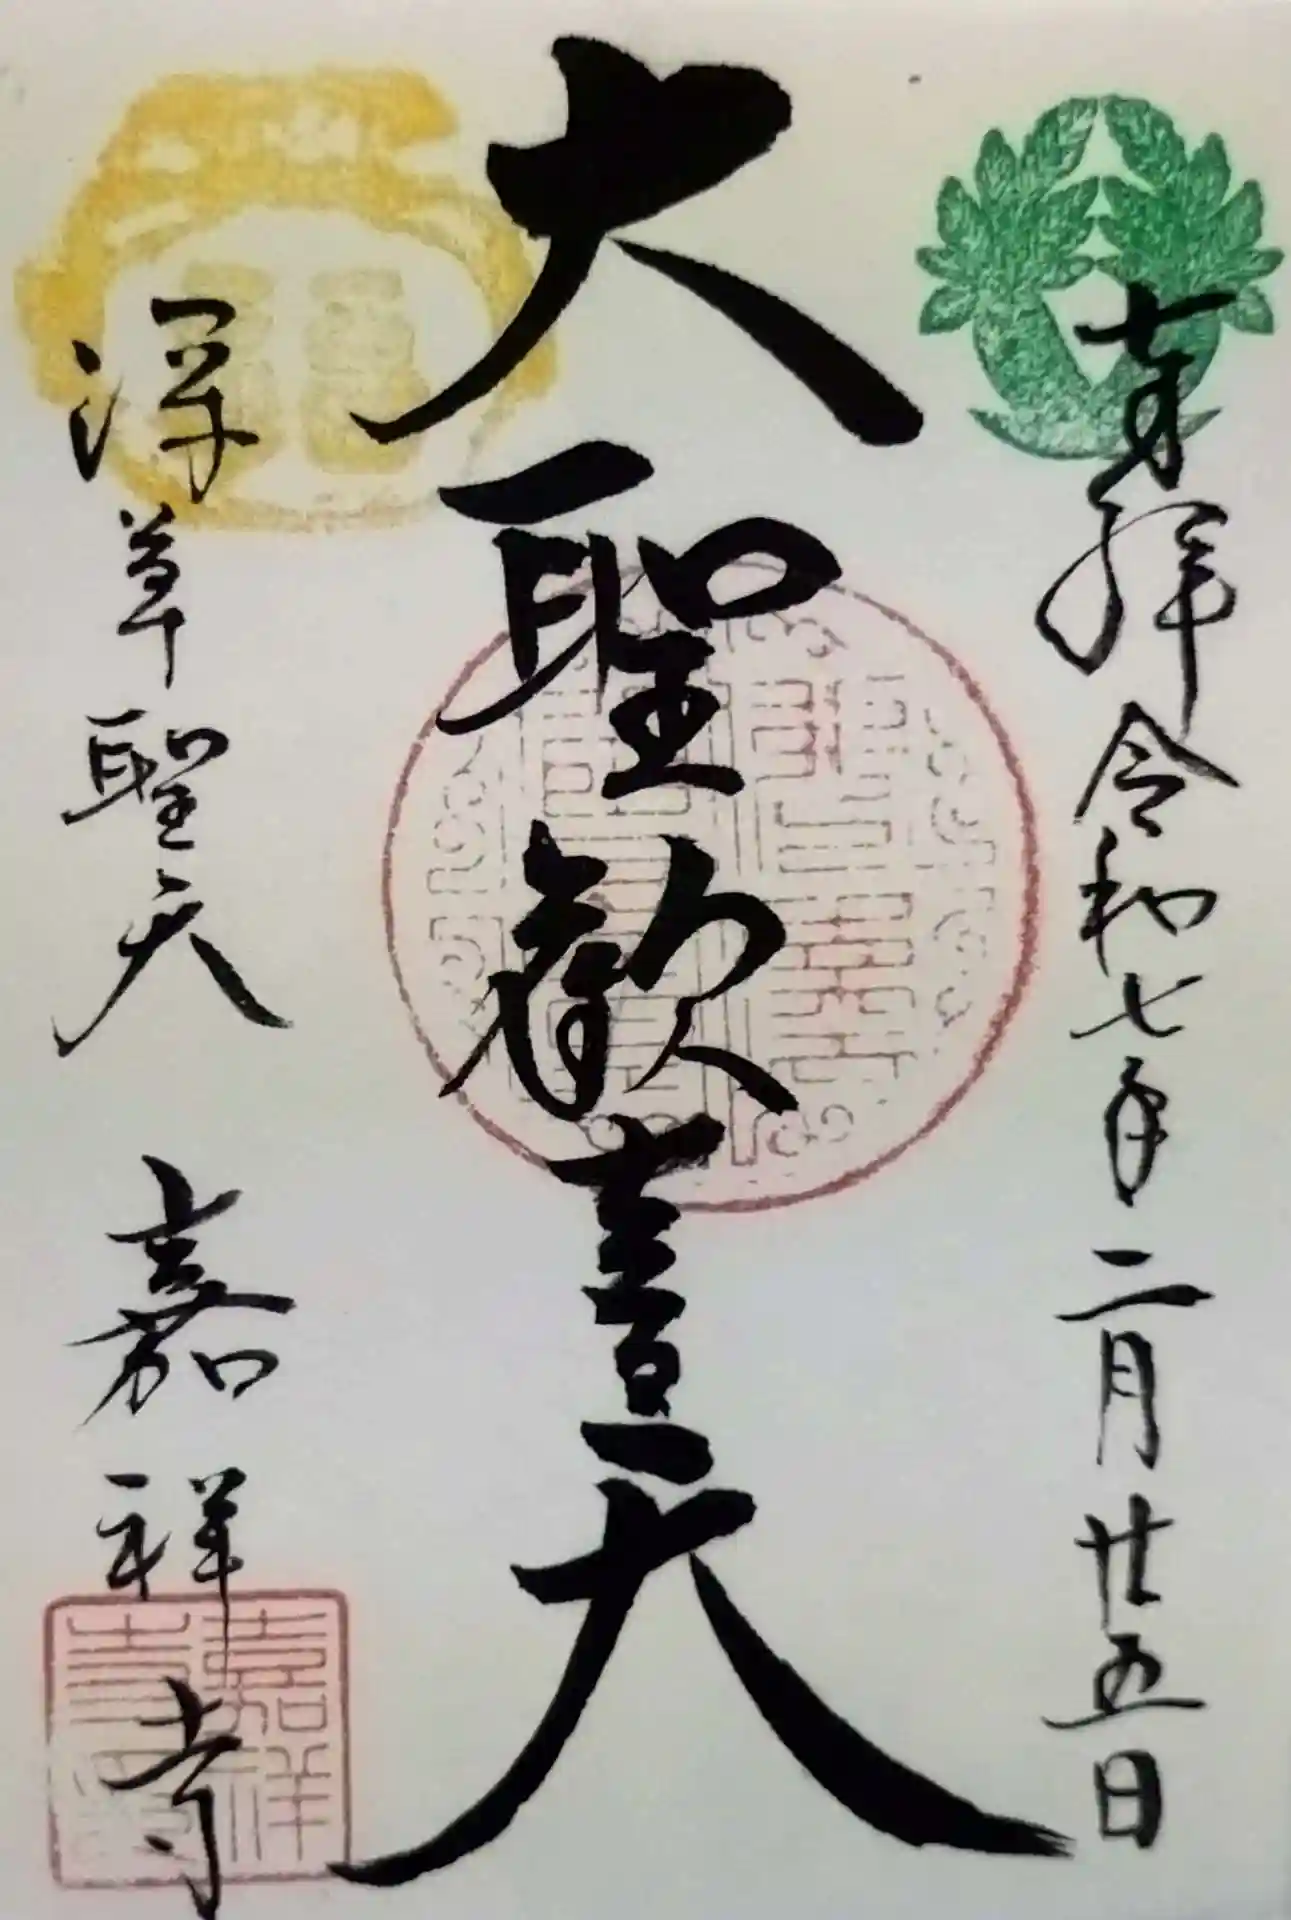 奉拝 令和七年二月廿五日
大聖歓喜天
深草聖天 嘉祥寺
嘉祥寺